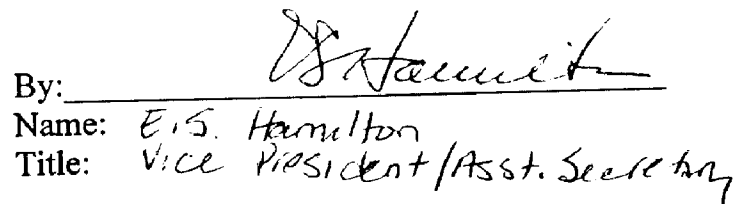 By: ES Hamilton
Name: E.S. Hamilton
Title: Vice President/Asst. Secretary